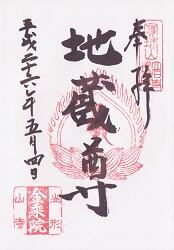 奉拝
地蔵尊
平成二十六年五月四日
金乘院
山形
山寺